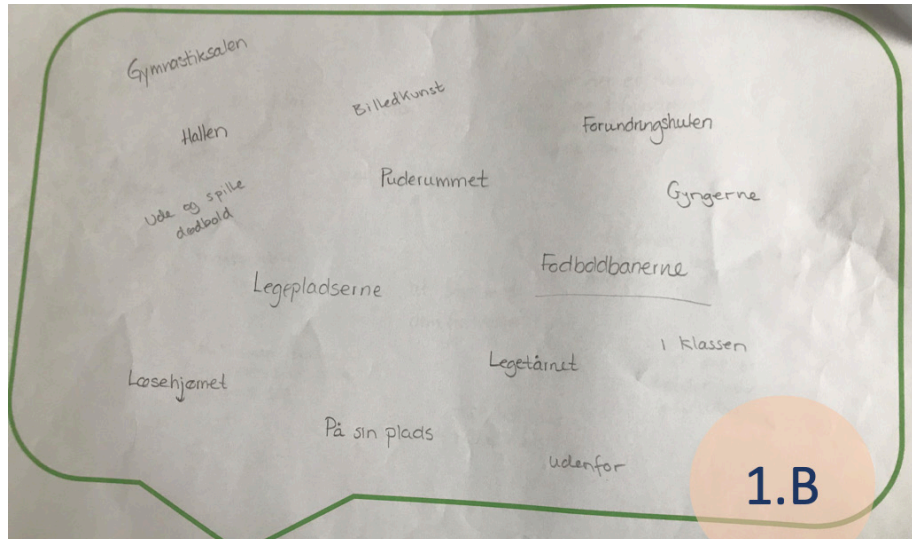 Gymnastiksalen
Billedkunst
Hallen
Forundringshulen
Puderummet
Gyngerne
Ude og spille
dødbold
Fodboldbanerne
Legepladserne
i klassen
Legetårnet
Læsehjørnet
På sin plads
udenfor
1.B